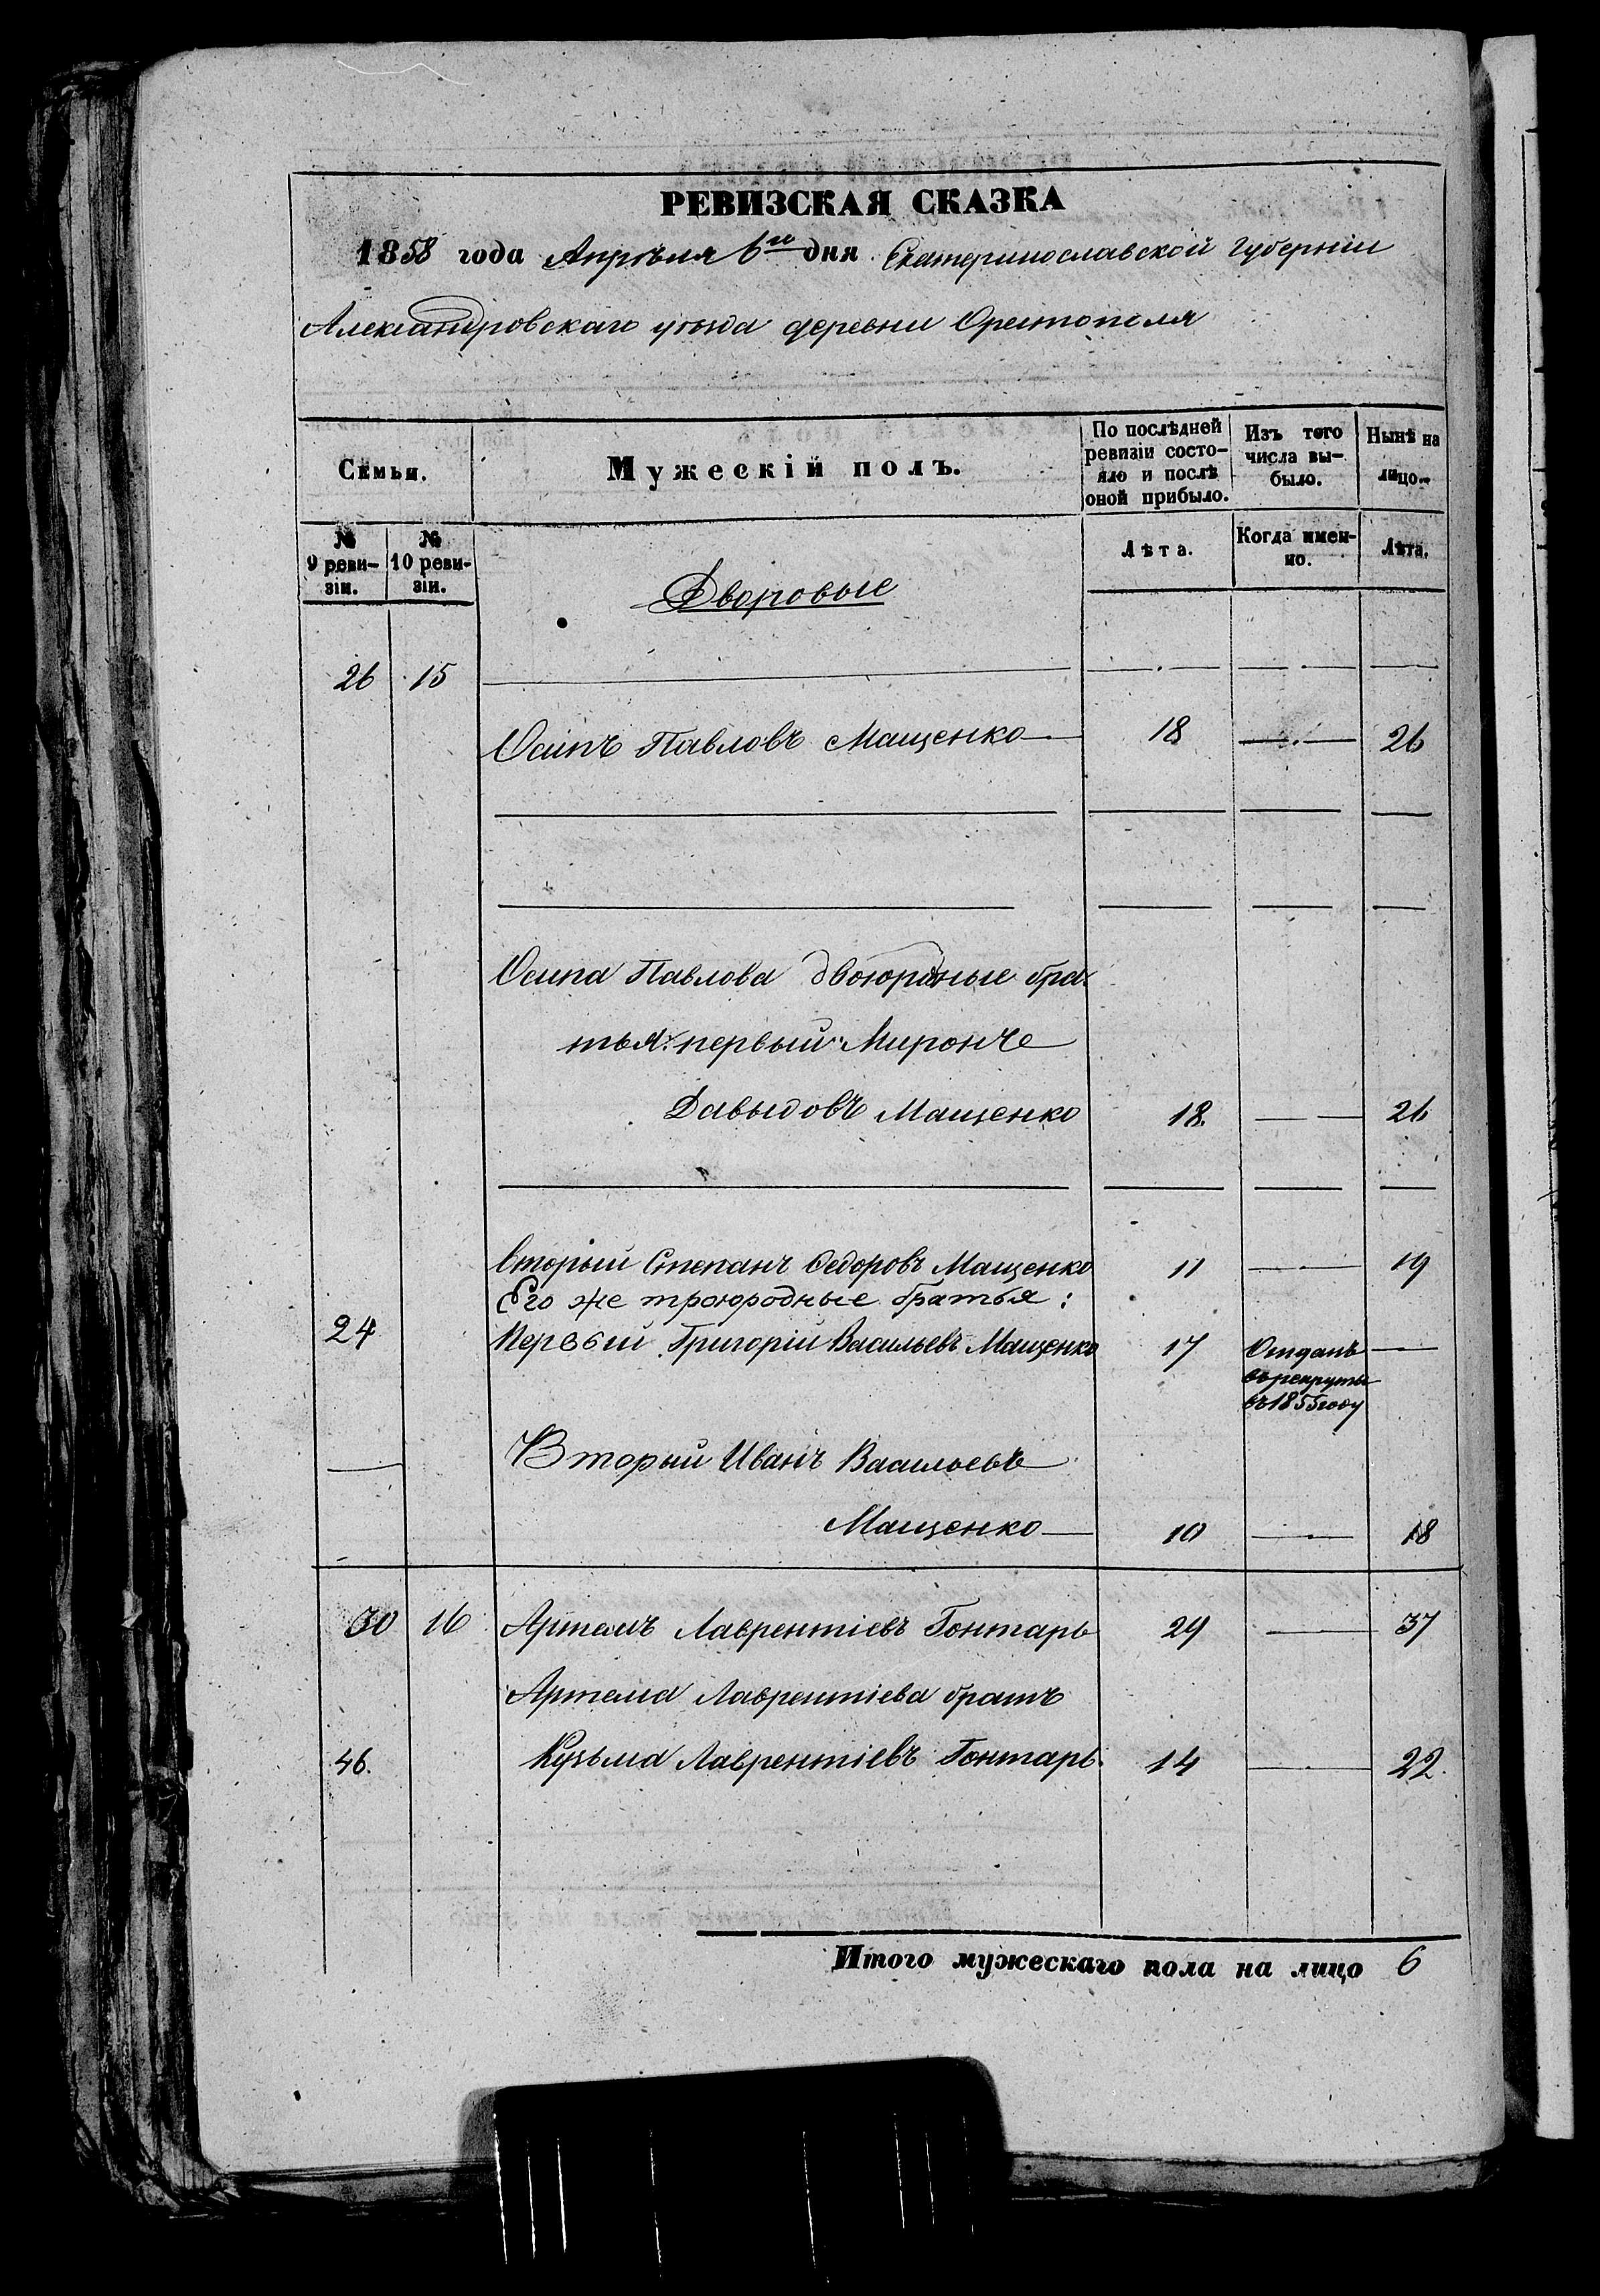 РЕВИЗСКАЯ СКАЗКА
1858 года Апреля 6го дня Екатеринославской Губернiи
Александровскаго уезда деревни Орестополя
Семьи.
Мужескiй полъ.
По послѣдней ревизiи состо-яло и послѣ оной прибыло.
Изъ того числа вы-было.
Нынѣ на лицо.
№ 9 реви-зiи.
№ 10 реви-зiи.
Лѣта.
Когда имен-но.
Лѣта.
Дворовые
26 15
Осипъ Павловъ Мащенко 18 26
Осипа Павлова двоюродные бра-
тья: первый Миронъ
Давыдовъ Мащенко 18. 26
вторый Степанъ Федоровъ Мащенко 11 19
Его же троюродные братья:
24 Первый Григорiй Васильевъ Мащенко 17 Отданъ
въ рекруты
въ 1855 году
Вторый Иванъ Васильевъ
Мащенко 10 18
30 16 Артемъ Лаврентiевъ Гонтарь 29 37
Артема Лаврентiева братъ
46. Кузьма Лаврентiевъ Гонтарь. 14 22.
Итого мужескаго пола на лицо 6